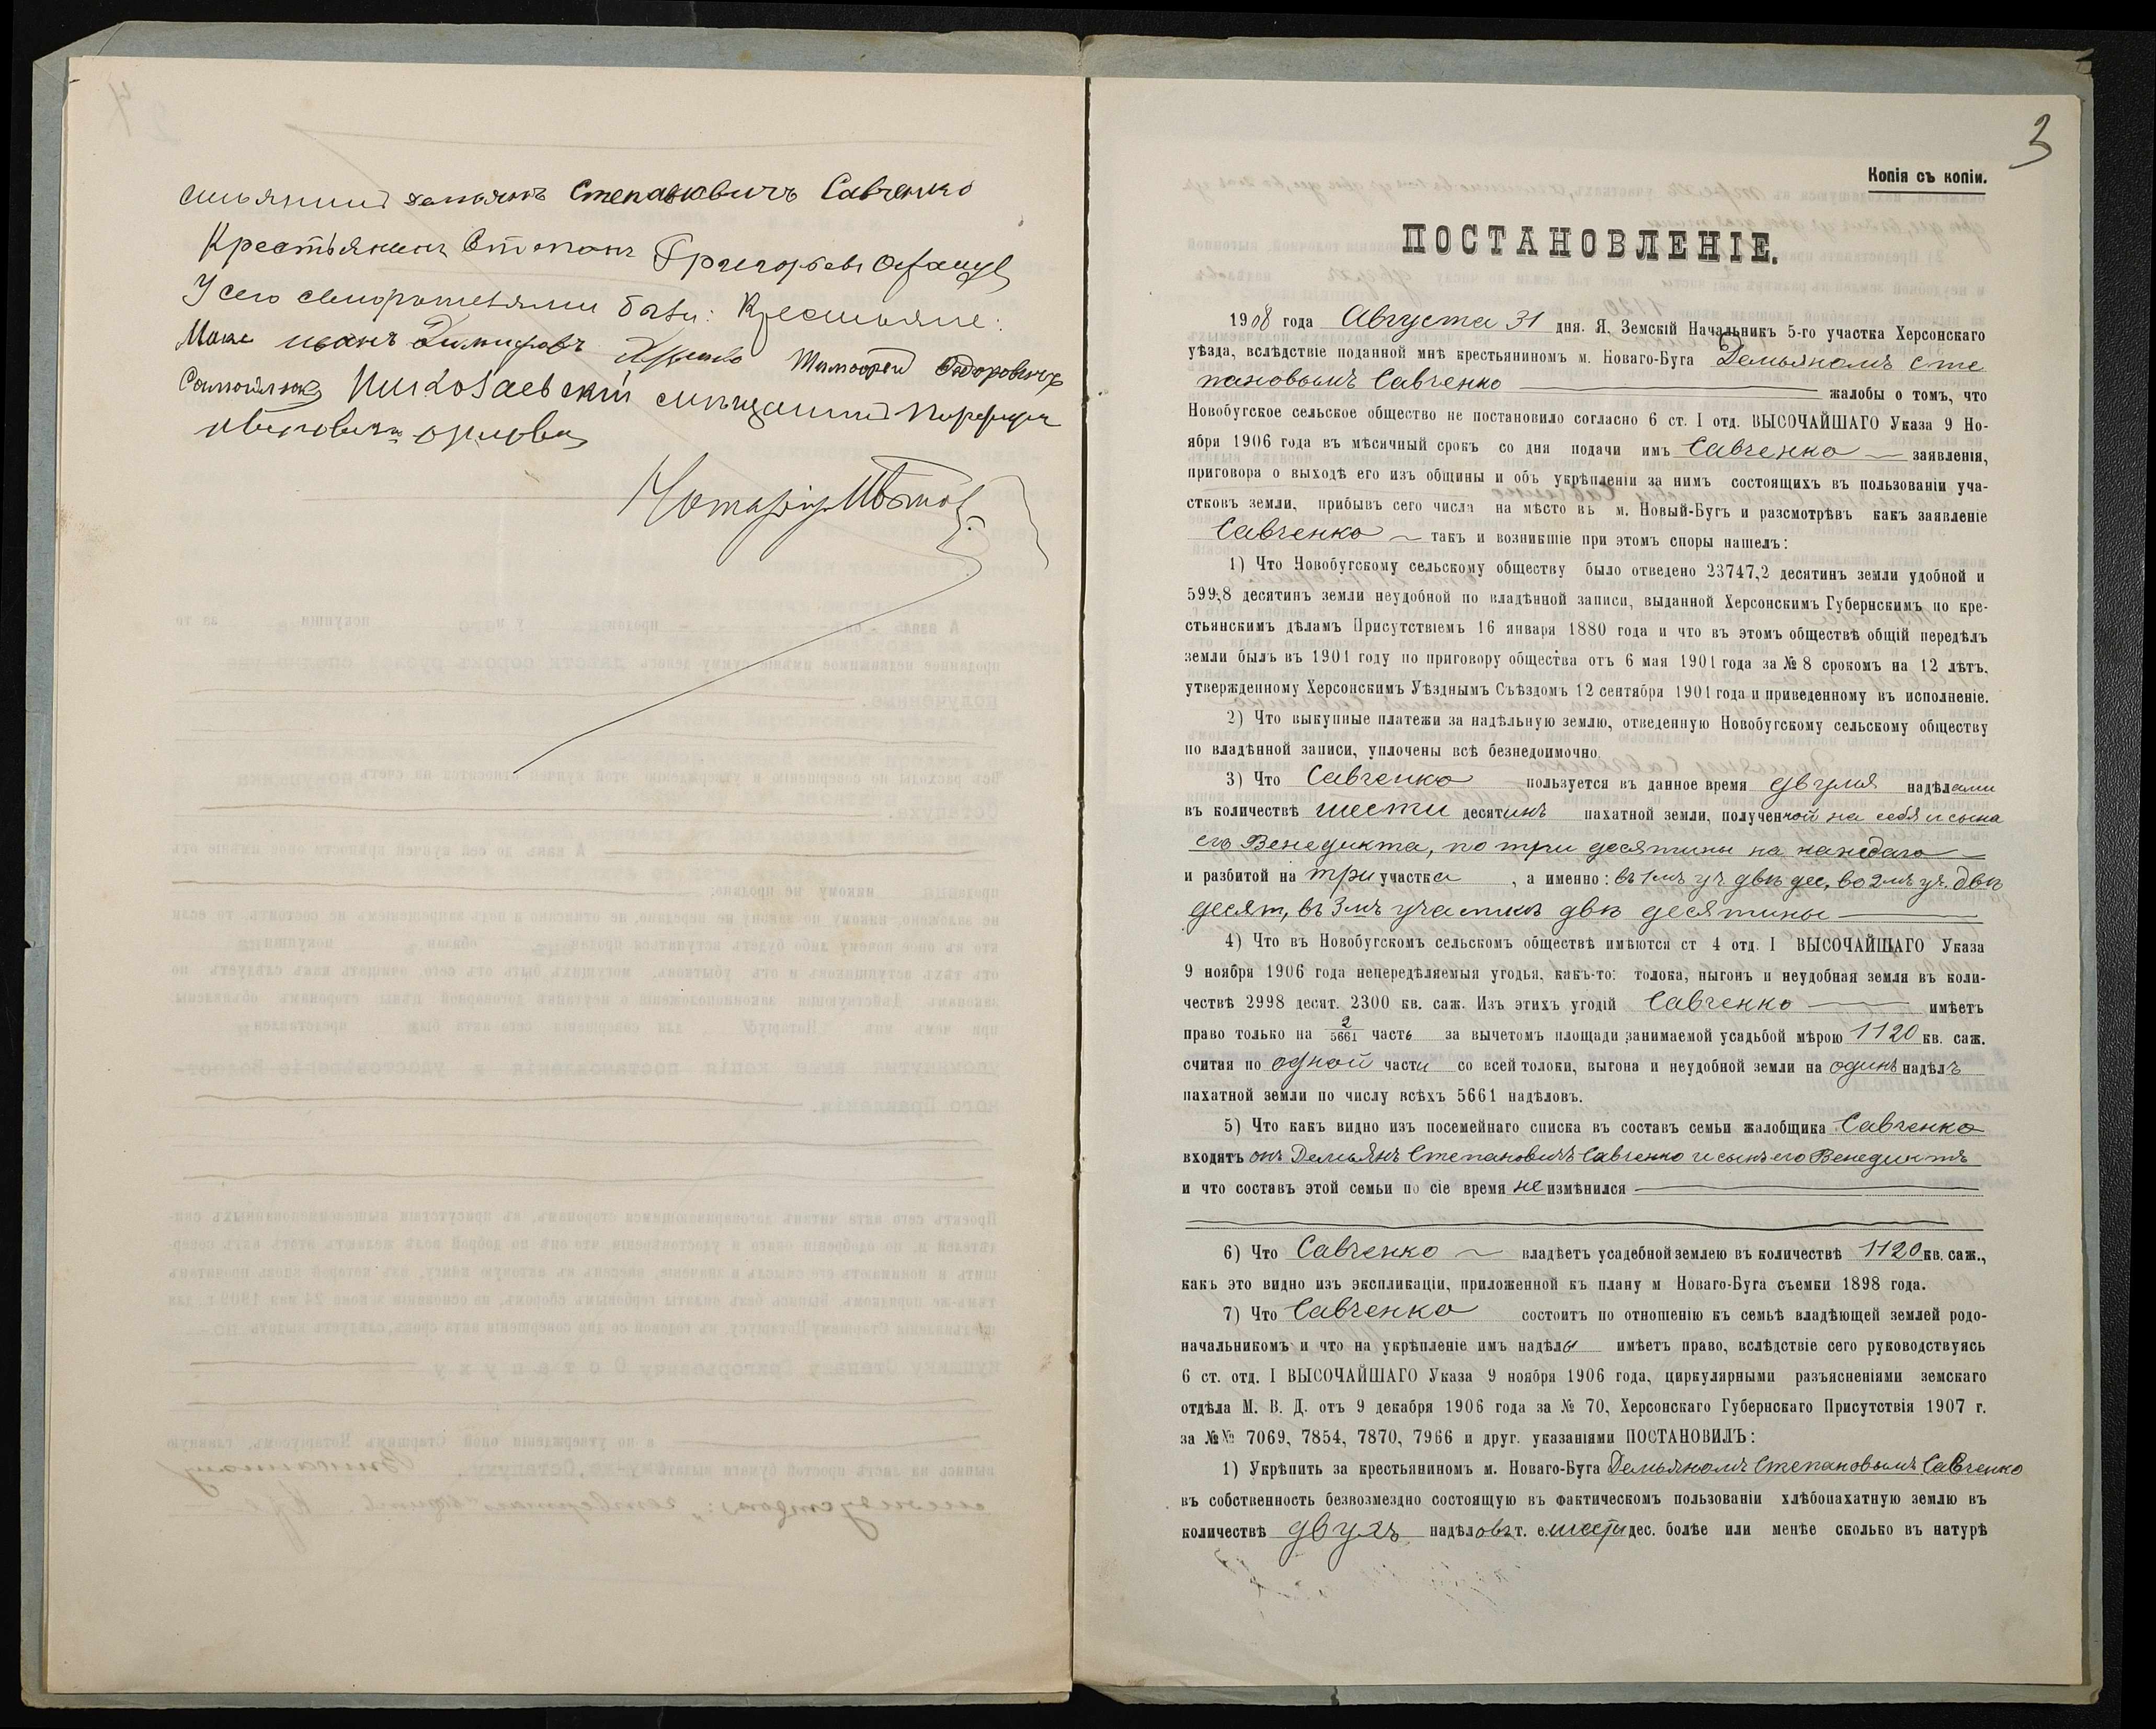 Демьянъ Степановичъ Савченко
Крестьянинъ Степанъ Григорьевъ Остапущ
У сего свидѣтелями были: Крестьяне:
Иванъ Димитровъ Тимофей Федоровичъ
Самойленко Николаевскій мѣщанинъ Порфирій
Нотаріусъ
3
Копія съ копіи.
ПОСТАНОВЛЕНІЕ.
1908 года Августа 31 дня. Я, Земскій Начальникъ 5-го участка Херсонскаго
уѣзда, вслѣдствіе поданной мнѣ крестьяниномъ м. Новаго-Буга Демьяномъ Сте
пановымъ Савченко жалобы о томъ, что
Новобугское сельское общество не постановило согласно 6 ст. I отд. ВЫСОЧАЙШАГО Указа 9 Но-
ября 1906 года въ мѣсячный срокъ со дня подачи имъ Савченко заявленія,
приговора о выходѣ его изъ общины и объ укрѣпленіи за нимъ состоящихъ въ пользованіи уча-
стковъ земли, прибывъ сего числа на мѣсто въ м. Новый-Бугъ и разсмотрѣвъ какъ заявленіе
Савченко такъ и возникшіе при этомъ споры нашелъ:
1) Что Новобугскому сельскому обществу было отведено 23747,2 десятинъ земли удобной и
599,8 десятинъ земли неудобной по владѣнной записи, выданной Херсонскимъ Губернскимъ по кре-
стьянскимъ дѣламъ Присутствіемъ 16 января 1880 года и что въ этомъ обществѣ общій передѣлъ
земли былъ въ 1901 году по приговору общества отъ 6 мая 1901 года за № 8 срокомъ на 12 лѣтъ,
утвержденному Херсонскимъ Уѣзднымъ Съѣздомъ 12 сентября 1901 года и приведенному въ исполненіе.
2) Что выкупные платежи за надѣльную землю, отведенную Новобугскому сельскому обществу
по владѣнной записи, уплочены всѣ безнедоимочно.
3) Что Савченко пользуется въ данное время двумя надѣлами
въ количествѣ шести десятинъ пахатной земли, полученной на себя и сына
его Венедикта, по три десятины на каждаго
и разбитой на три участка, а именно: въ 1мъ уч двѣ дес, во 2мъ уч. двѣ
десят, въ 3мъ участкѣ двѣ десятины
4) Что въ Новобугскомъ сельскомъ обществѣ имѣются ст 4 отд. I ВЫСОЧАЙШАГО Указа
9 ноября 1906 года непередѣляемыя угодья, какъ-то: толока, выгонъ и неудобная земля въ коли-
чествѣ 2998 десят. 2300 кв. саж. Изъ этихъ угодій Савченко имѣетъ
право только на 2/5661 часть за вычетомъ площади занимаемой усадьбой мѣрою 1120 кв. саж.
считая по одной части со всей толоки, выгона и неудобной земли на одинъ надѣлъ
пахатной земли по числу всѣхъ 5661 надѣловъ.
5) Что какъ видно изъ посемейнаго списка въ составъ семьи жалобщика Савченко
входятъ онъ Демьянъ Степановичъ Савченко и сынъ его Венедиктъ
и что составъ этой семьи по сіе время не измѣнился
6) Что Савченко владѣетъ усадебной землею въ количествѣ 1120 кв. саж.,
какъ это видно изъ экспликаціи, приложенной къ плану м Новаго-Буга съемки 1898 года.
7) Что Савченко состоитъ по отношенію къ семьѣ владѣющей землей родо-
начальникомъ и что на укрѣпленіе имъ надѣлы имѣетъ право, вслѣдствіе сего руководствуясь
6 ст. отд. I ВЫСОЧАЙШАГО Указа 9 ноября 1906 года, циркулярными разъясненіями земскаго
отдѣла М. В. Д. отъ 9 декабря 1906 года за № 70, Херсонскаго Губернскаго Присутствія 1907 г.
за №№ 7069, 7854, 7870, 7966 и друг. указаніями ПОСТАНОВИЛЪ:
1) Укрѣпить за крестьяниномъ м. Новаго-Буга Демьяномъ Степановымъ Савченко
въ собственность безвозмездно состоящую въ фактическомъ пользованіи хлѣбопахатную землю въ
количествѣ двухъ надѣловъ т. е. шести дес. болѣе или менѣе сколько въ натурѣ